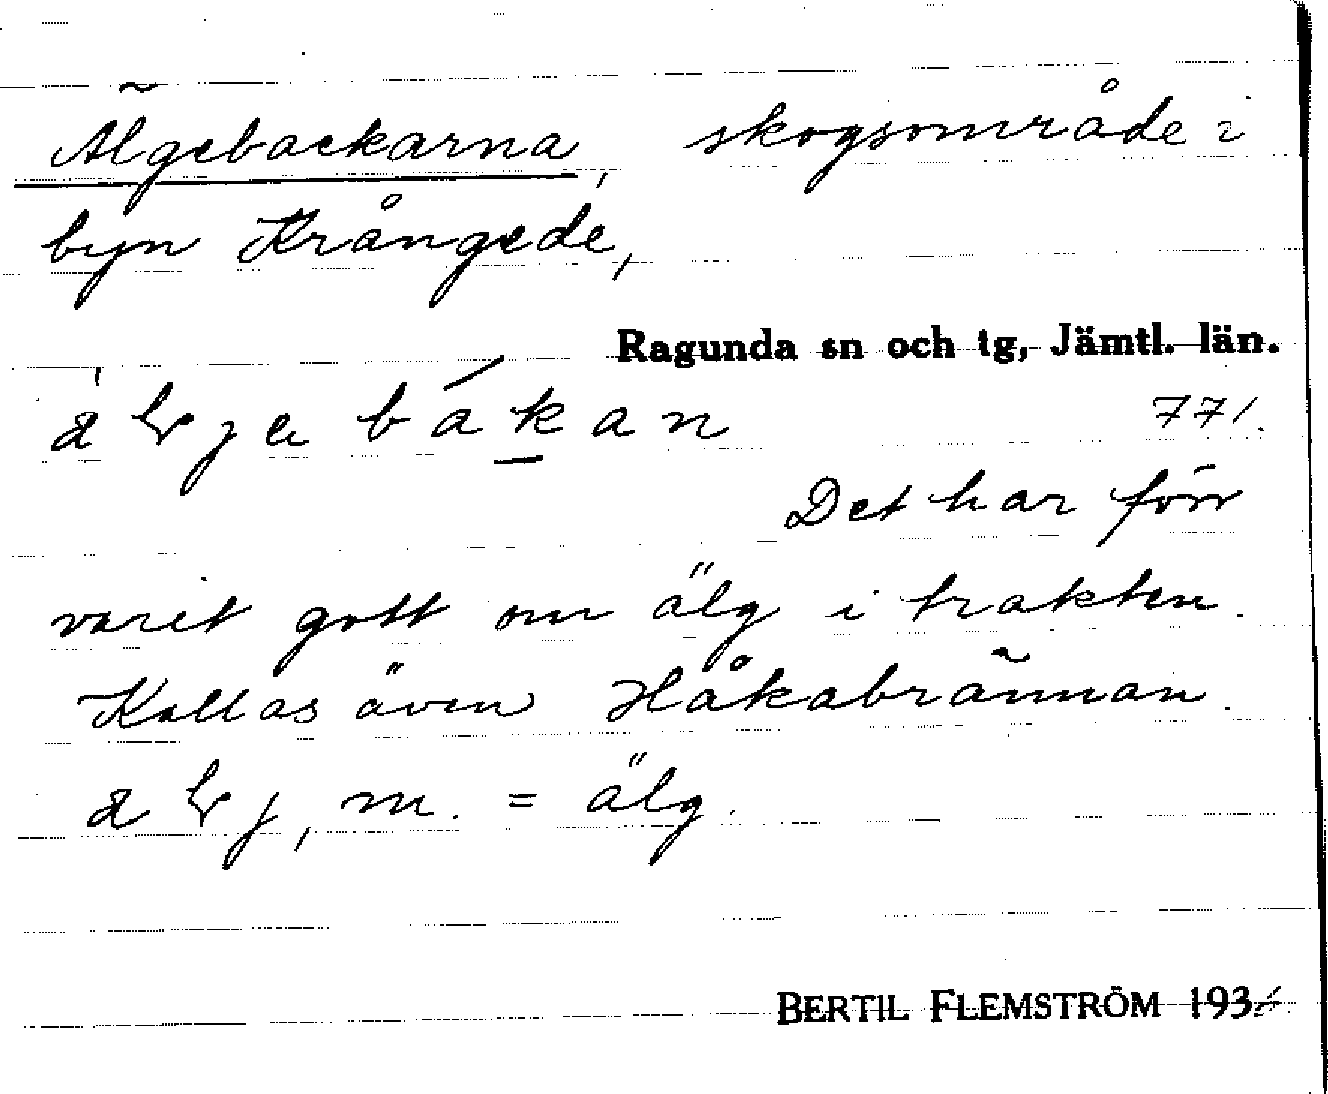 Älgebackarna, skogsområde i
byn Krångede,
Ragunda sn och tg, Jämtl. län.
771.
Det har förr
varit gott om älg i trakten.
Kallas även Håkabrännan.
m. = älg.
BERTIL FLEMSTRÖM 193